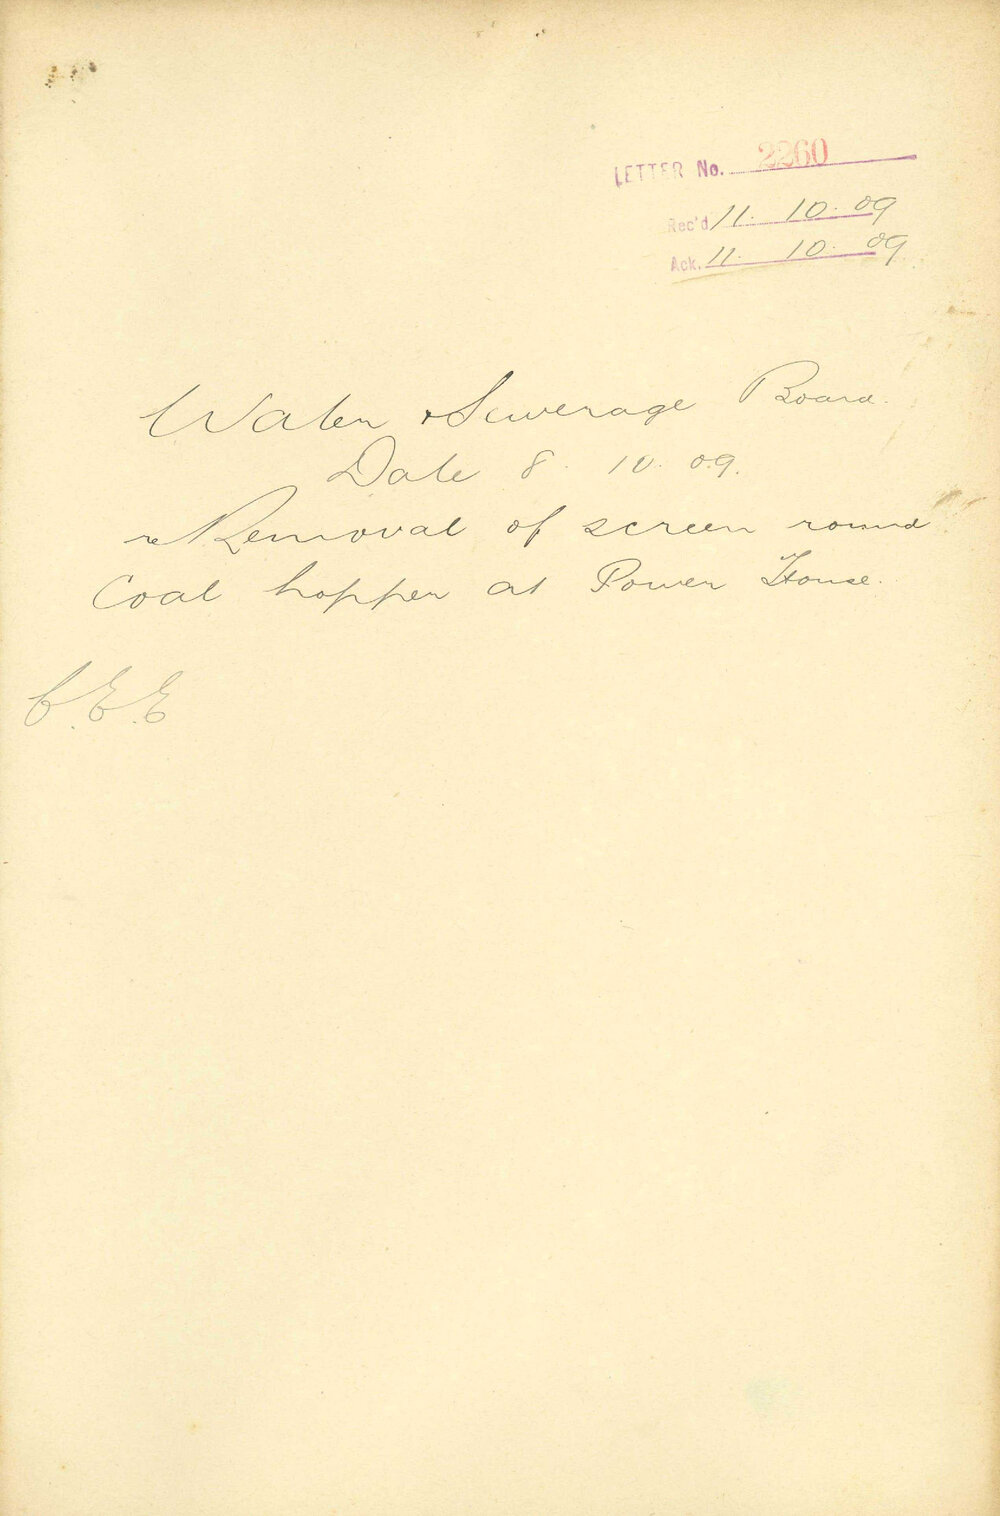 LETTER No. 2260
Rec'd 11. 10. 09
Ack. 11. 10. 09
Water & Sewerage Board.
Date 8. 10. 09.
re Removal of screen round
Coal hopper at Power House.
C.E.E